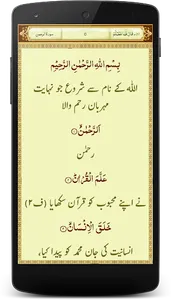 بِسْمِ اللّٰهِ الرَّحْمٰنِ الرَّحِیْمِ
اللہ کے نام سے شروع جو نہایت
مہربان رحم والا
اَلرَّحْمٰنُ ۙ﴿۱﴾
رحمٰن
عَلَّمَ الْقُرْاٰنَ ؕ﴿۲﴾
نے اپنے محبوب کو قرآن سکھایا (ف۲)
خَلَقَ الْاِنْسَانَ ۙ﴿۳﴾
انسانیت کی جان محمد کو پیدا کیا،